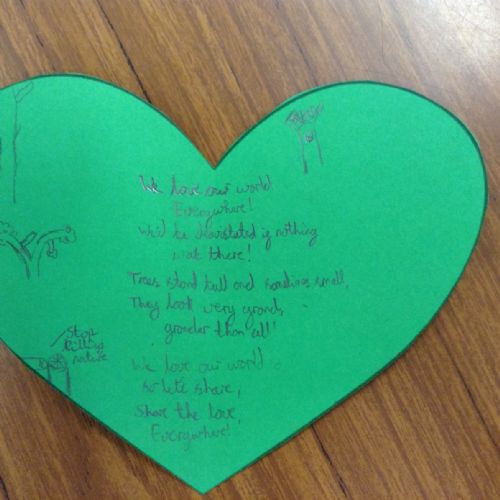 We love our world
Everywhere!
We'd be devistated if nothing
was there!
Trees stand tall and sometimes small,
They look very grand,
grander than all!
We love our world
so let's share,
Share the love,
Everywhere!
Stop
killing
nature